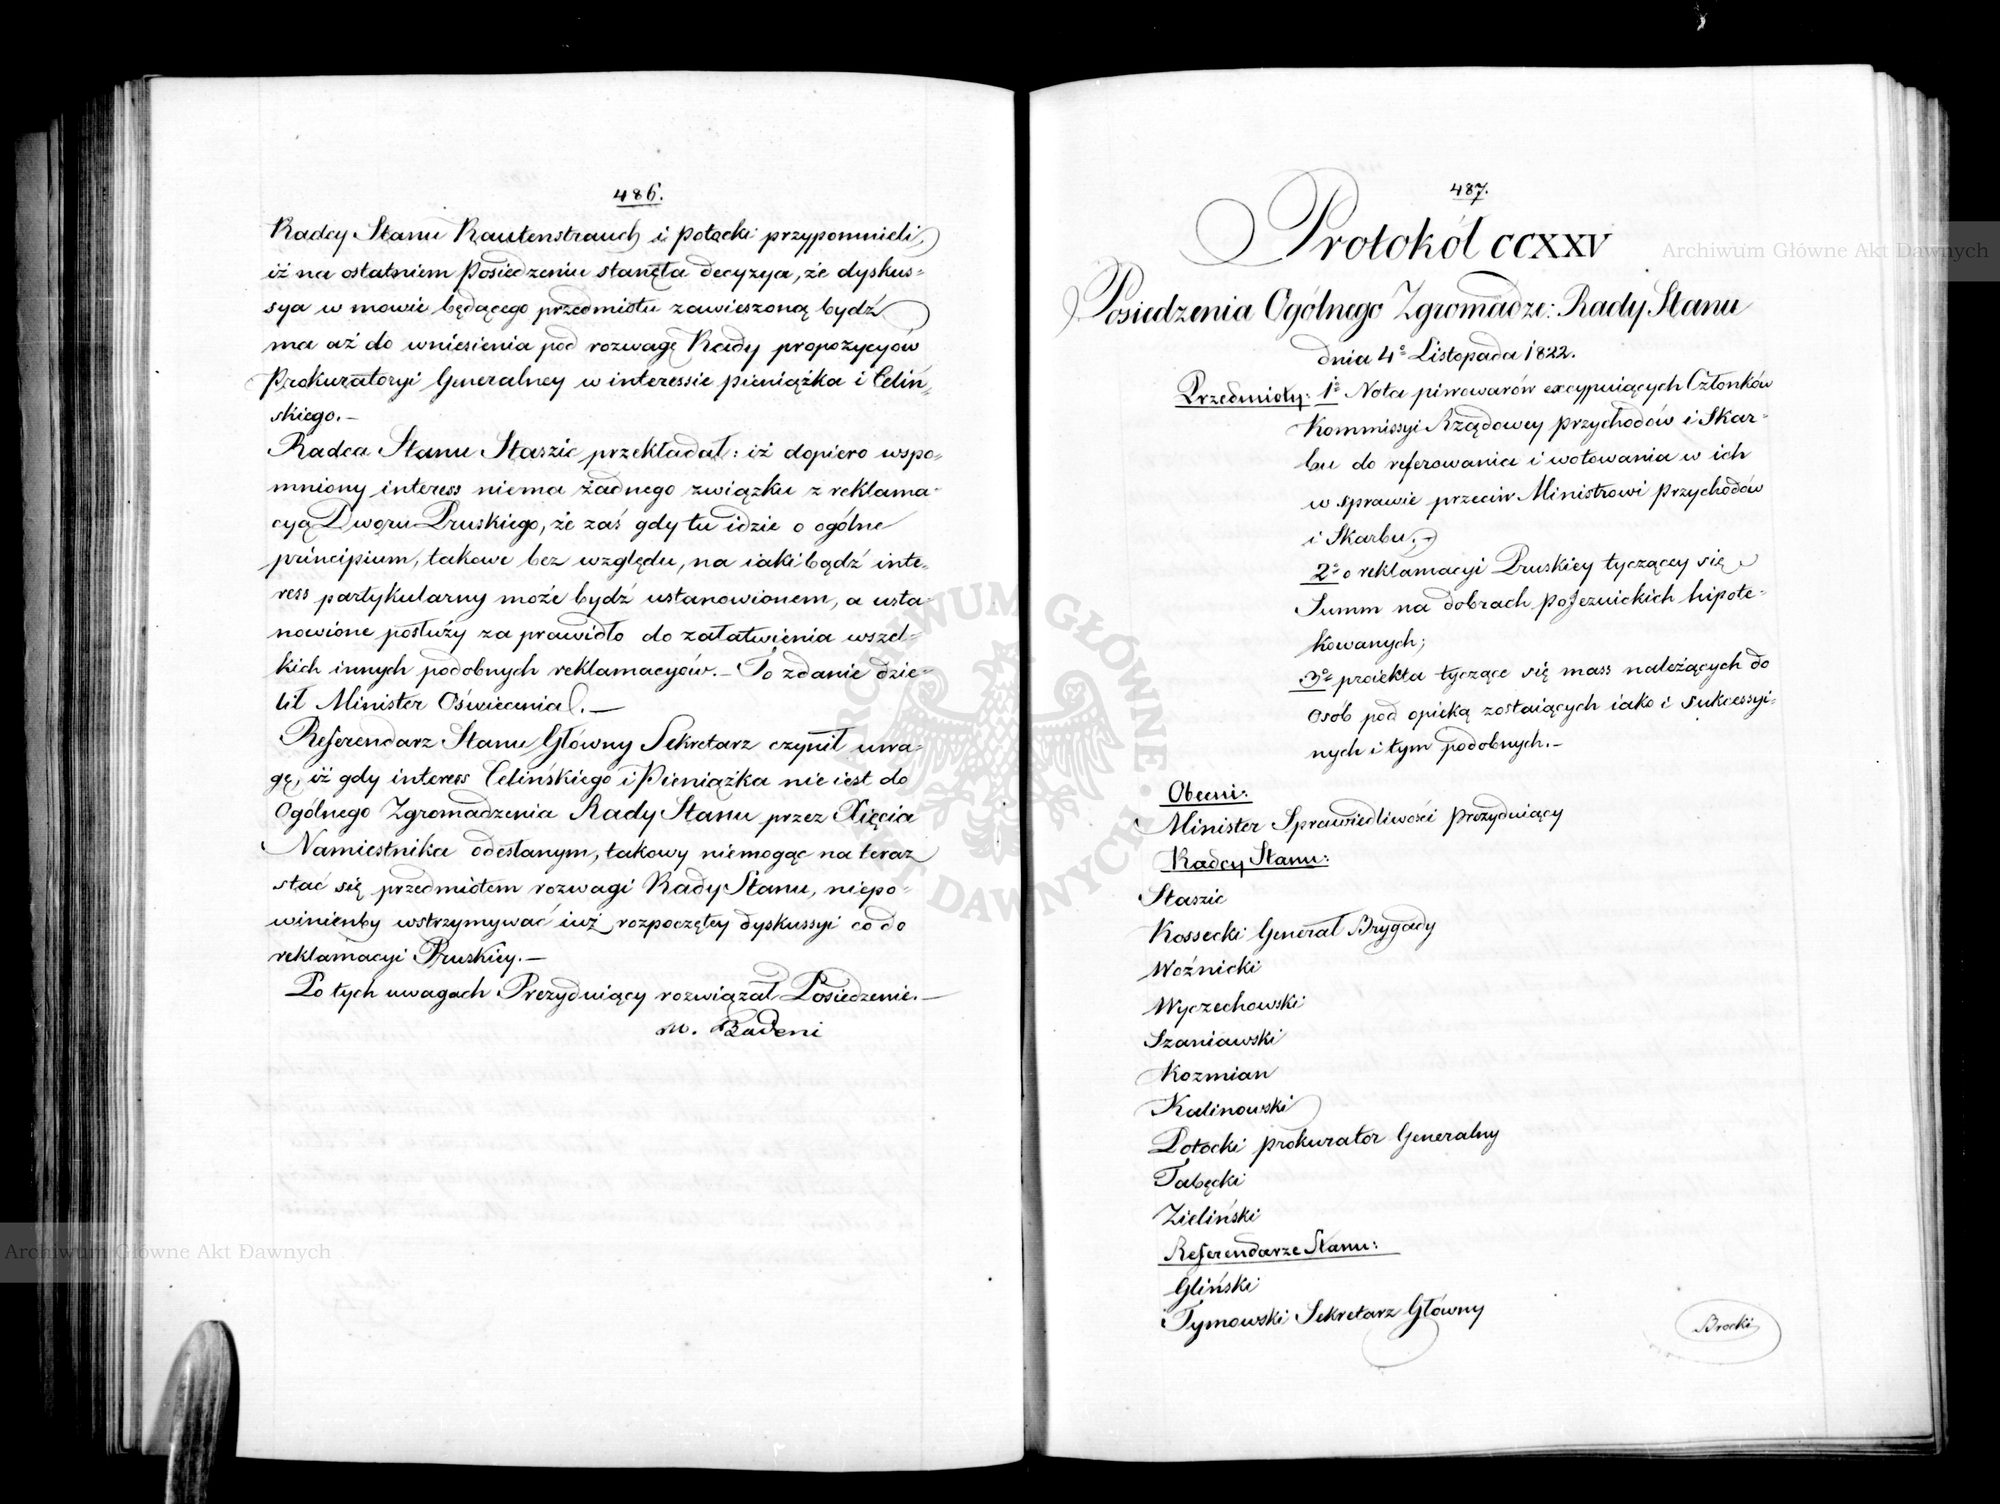 486.
Radcy Stanu Rautenstrauch i Potocki przypomnieli,
iż na ostatniem Posiedzeniu stanęła decyzya, że dyskus=
sya w mowie będącego przedmiotu zawieszoną bydź
ma aż do wniesienia pod rozwagę Rady propozycyów
Prokuratoryi Generalney w interessie Pieniążka i Celiń=
skiego.—
Radca Stanu Staszic przekładał: iż dopiero wspo=
mniony interess niema żadnego związku z reklama=
cyą Dworu Pruskiego, że zaś gdy tu idzie o ogólne
principium, takowe bez względu, na iaki bądź inte=
ress partykularny może bydź ustanowionem, a usta=
nowione posłuży za prawidło do załatwienia wszel=
kich innych podobnych reklamacyów.— To zdanie dzie=
lił Minister Oświecenia.—
Referendarz Stanu Główny Sekretarz czynił uwa=
gę, iż gdy interess Celińskiego i Pieniążka nie iest do
Ogólnego Zgromadzenia Rady Stanu przez Xięcia
Namiestnika odesłanym, takowy niemogąc na teraz
stać się przedmiotem rozwagi Rady Stanu, niepo=
winienby wstrzymywać iuż rozpoczętey dyskussyi co do
reklamacyi Pruskiey.—
Po tych uwagach Prezyduiący rozwiązał Posiedzenie.—
M. Badeni
487.
Protokół CCXXV
Posiedzenia Ogólnego Zgromadze: Rady Stanu
dnia 4º Listopada 1822.
Przedmioty: 1º Nota piwowarów excypuiących Członków
Kommissyi Rządowey Przychodów i Skar=
bu do referowania i wotowania w ich
w sprawie przeciw Ministrowi Przychodów
i Skarbu;—
2º o reklamacyi Pruskiey tyczącey się
Summ na dobrach poJezuickich hipote=
kowanych;
3º proiekta tyczące się mass należących do
Osob pod opieką zostaiących iako i sukcessyi=
nych i tym podobnych.—
Obecni:
Minister Sprawiedliwości Prezyduiący
Radcy Stanu:
Staszic
Kossecki Generał Brygady
Woźnicki
Wyczechowski
Szaniawski
Kozmian
Kalinowski
Potocki Prokurator Generalny
Tabęcki
Zieliński
Referendarze Stanu:
Gliński
Tymowski Sekretarz Główny
Brocki
Archiwum Główne Akt Dawnych
Archiwum Główne Akt Dawnych
ARCHIWUM GŁÓWNE AKT DAWNYCH